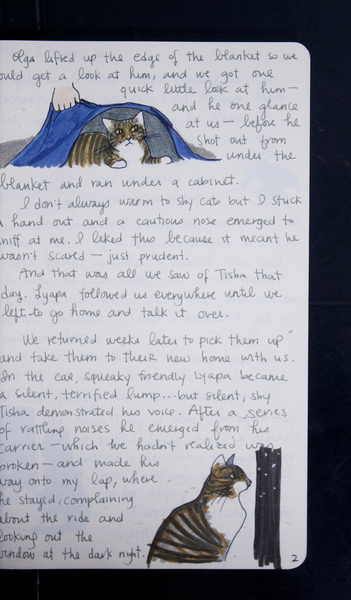 Olga lifted up the edge of the blanket so we
ould get a look at him, and we got one
quick little look at him—
and he one glance
at us— before he
shot out from
under the
blanket and ran under a cabinet.
I don't always warm to shy cats but I stuck
a hand out and a cautious nose emerged to
sniff at me. I liked this because it meant he
wasn't scared — just prudent.
And that was all we saw of Tisha that
day. Lyapa followed us everywhere until we
left to go home and talk it over.
We returned weeks later to pick them up
and take them to their new home with us.
In the car, squeaky friendly Lyapa became
a silent, terrified lump...but silent, shy
Tisha demonstrated his voice. After a series
of rattling noises he emerged from his
carrier — which we hadn't realized was
broken — and made his
way onto my lap, where
he stayed, complaining
about the ride and
looking out the
window at the dark night.
2